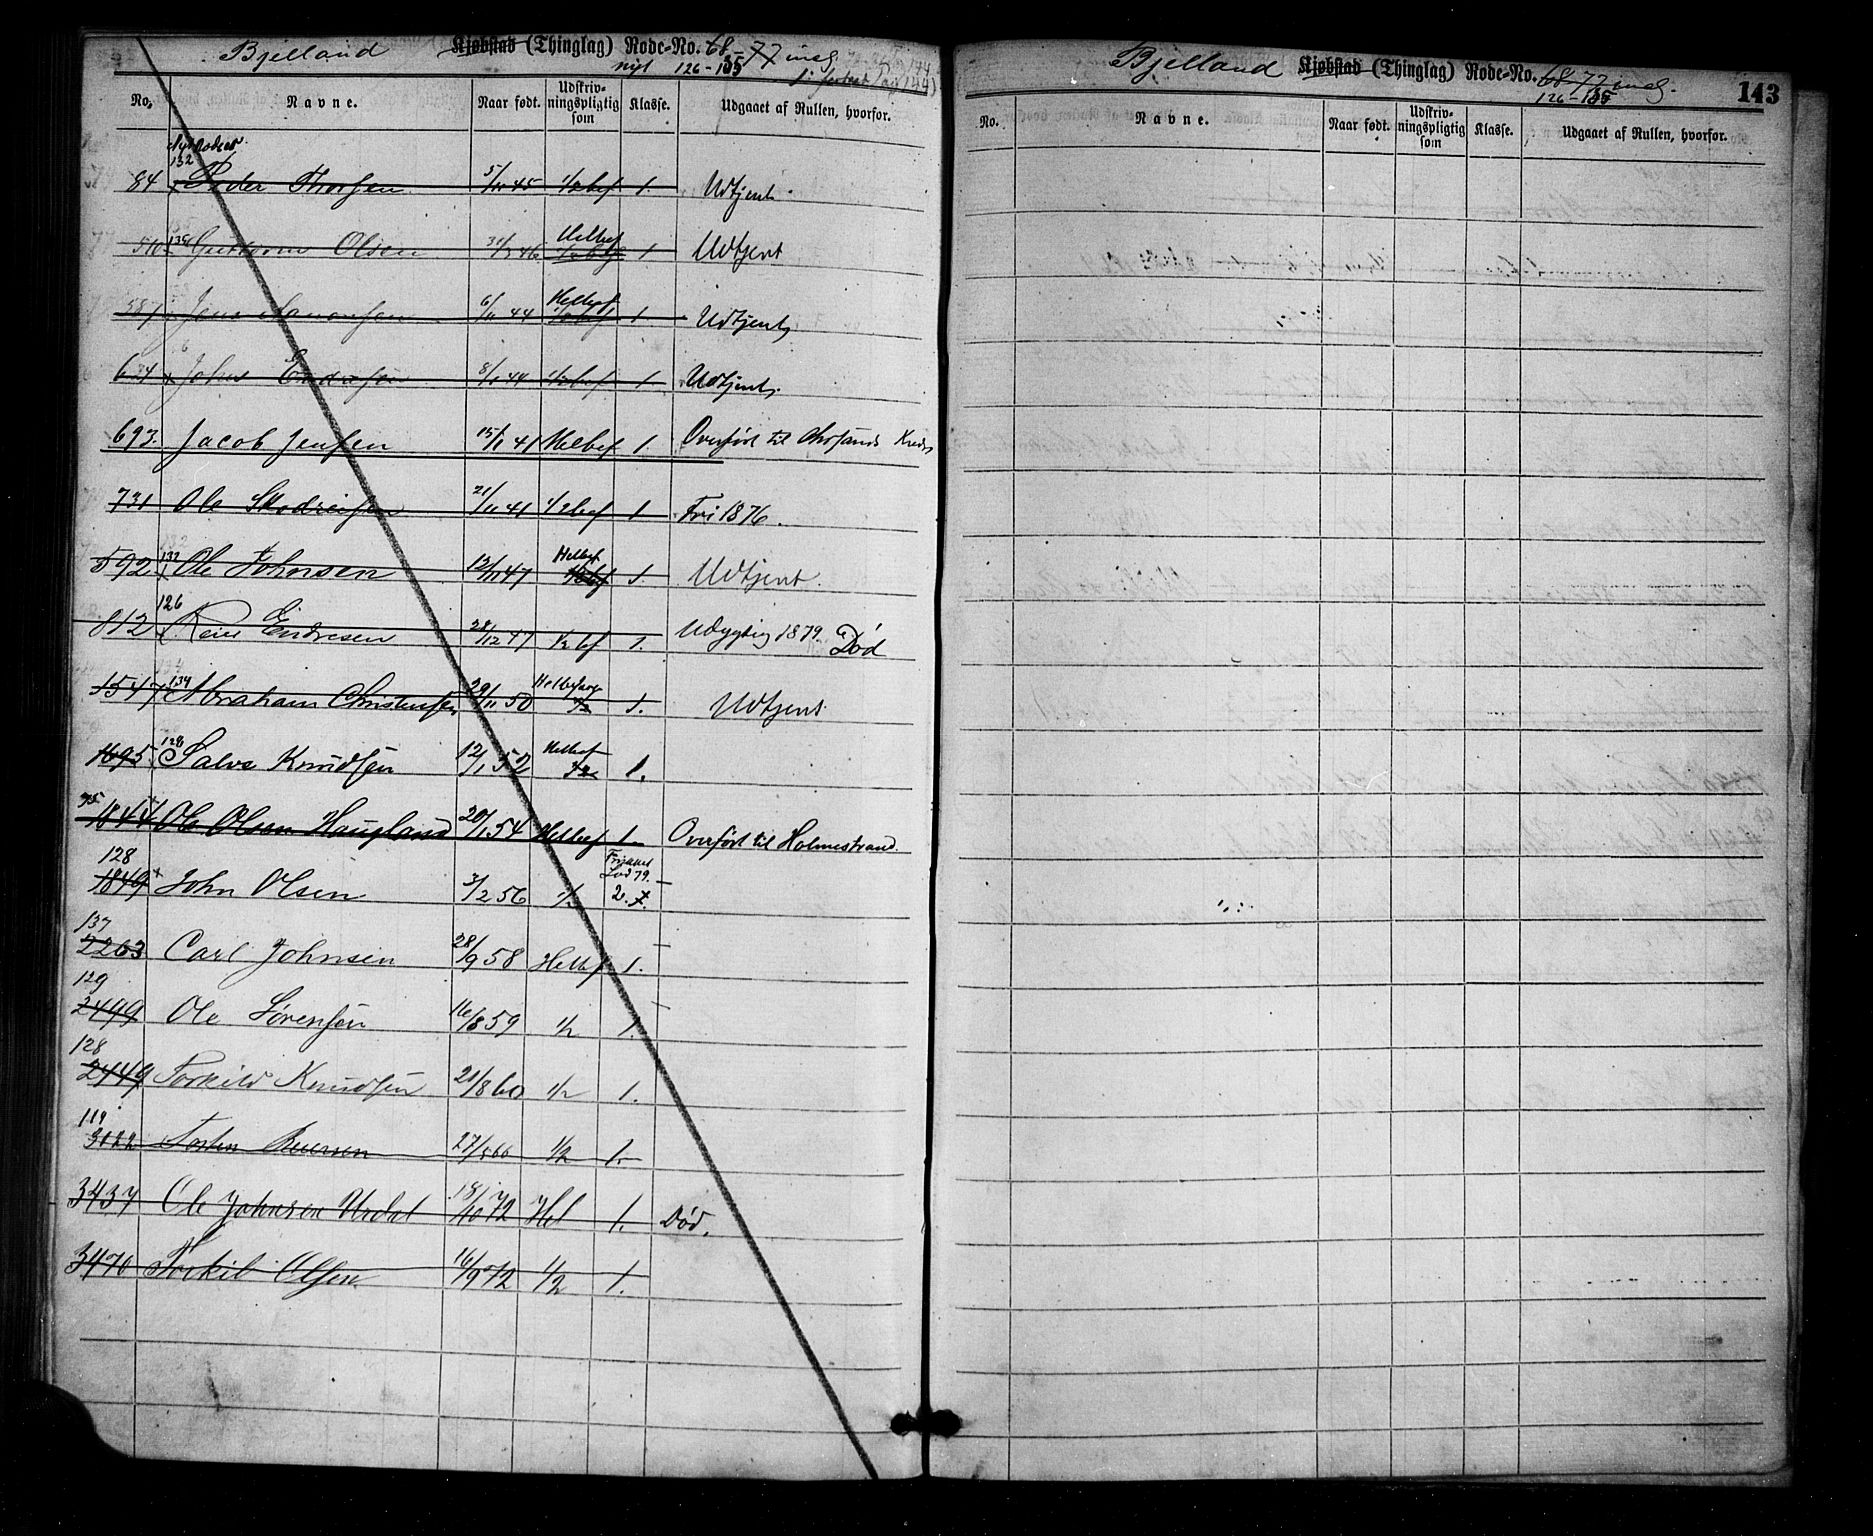 Bjelland Kjøbstad (Thinglag) Rode-No. 68-77 incl.
nyt 126-135
No. Navne. Naar født. Udskriv-ningspligtig som Klasse. Udgaaet af Rullen, hvorfor.
132
84 Peder Thorsen 5/11 45 1/2 bef 1. Udtjent.
510 Guttorm Olsen 46 Helbef 1/2 bef 1 Udtjent
587 Jens 6/11 44 Helbef 1/2 bef 1. Udtjent,
634 Johns Endresen 8/1 44 1/2 bef 1. Udtjent,
693. Jacob Jensen 15/1 41 Helbef 1. Overført til Kreds
731 Ole 21/11 41 1/2 bef 1 Fri 1876.
592 132 Ole Johnsen 12/11 47 Helbef 1. Udtjent.
126
812 Endresen 28/12 47 1/2 bef 1. Udygtig 1879. Død
1547 134 Abraham Christensen 29/11 50 1/2 1. Udtjent
1695 128 Salve Knudsen 12/1 52 Helbef 1/2 1.
1844 Ole Olsen Haugland 20/1 54 Helbef 1. Overført til Holmestrand.
128
1849 John Olsen 3/2 56 1/2 2.
137
2263 Carl Johnsen 28/9 58 Helbef 1.
129
2499 Ole Sørensen 16/8 59 1/2 1.
128
2449 Torkild Knudsen 21/8 60 1/2 1.
119
3122 27/5 66 1/2 1.
3437 Ole Johnsen Urdal 18/10 72 Hel 1. Død.
3470 Torkil Olsen 16/9 72 1/2 1.
Bjelland Kjøbstad (Thinglag) Rode-No. 68-77 incl. 143
126-135
No. Navne. Naar født. Udskriv-ningspligtig som Klasse. Udgaaet af Rullen, hvorfor.